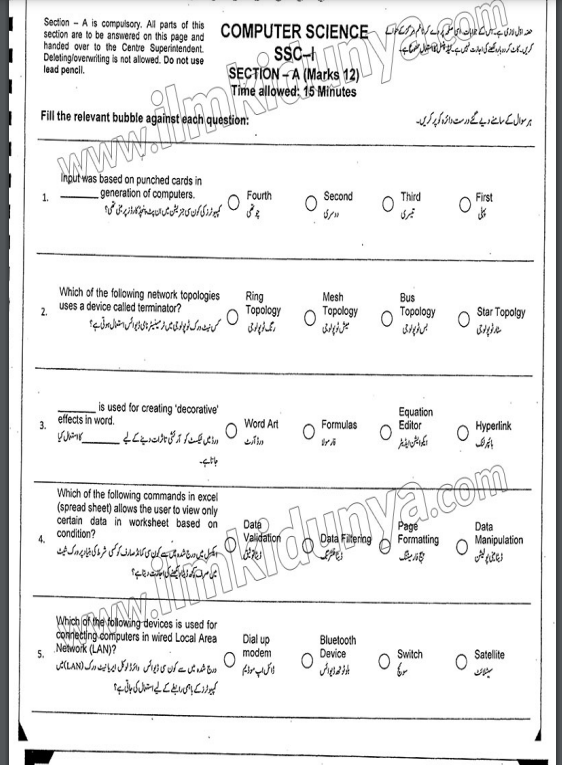 Section – A is compulsory. All parts of this
section are to be answered on this page and
handed over to the Centre Superintendent.
Deleting/overwriting is not allowed. Do not use
lead pencil.
COMPUTER SCIENCE
SSC–I
SECTION – A (Marks 12)
Time allowed: 15 Minutes
Fill the relevant bubble against each question:
ہر سوال کے سامنے دیے گئے درست دائرہ کو پر کریں۔
1.
Input was based on punched cards in
________ generation of computers.
کمپیوٹرز کی کون سی جنریشن میں ان پٹ پنچڈ کارڈز پر مبنی تھی؟
Fourth
چوتھی
Second
دوسری
Third
تیسری
First
پہلی
2.
Which of the following network topologies
uses a device called terminator?
کس نیٹ ورک ٹوپولوجی میں ٹرمینیٹر نامی ڈیوائس استعمال ہوتی ہے؟
Ring
Topology
رنگ ٹوپولوجی
Mesh
Topology
میش ٹوپولوجی
Bus
Topology
بس ٹوپولوجی
Star Topolgy
سٹار ٹوپولوجی
3.
________ is used for creating 'decorative'
effects in word.
ورڈ میں ٹیکسٹ کو آرائشی تاثرات دینے کے لیے ________ کا استعمال کیا
جاتا ہے۔
Word Art
ورڈ آرٹ
Formulas
فارمولا
Equation
Editor
ایکوایشن ایڈیٹر
Hyperlink
ہائپر لنک
4.
Which of the following commands in excel
(spread sheet) allows the user to view only
certain data in worksheet based on
condition?
Data
Validation
Data Filtering
ڈیٹا فلٹرنگ
Page
Formatting
پیج فارمیٹنگ
Data
Manipulation
5.
Which of the following devices is used for
connecting computers in wired Local Area
Network (LAN)?
درج شدہ میں سے کون سی ڈیوائس وائرڈ لوکل ایریا نیٹ ورک (LAN) میں
کمپیوٹرز کے باہمی رابطے کے لیے استعمال کی جاتی ہے؟
Dial up
modem
ڈائل اپ موڈیم
Bluetooth
Device
بلوٹوتھ ڈیوائس
Switch
سوئچ
Satellite
سیٹلائٹ
www.ilmkidunya.com
www.ilmkidunya.com